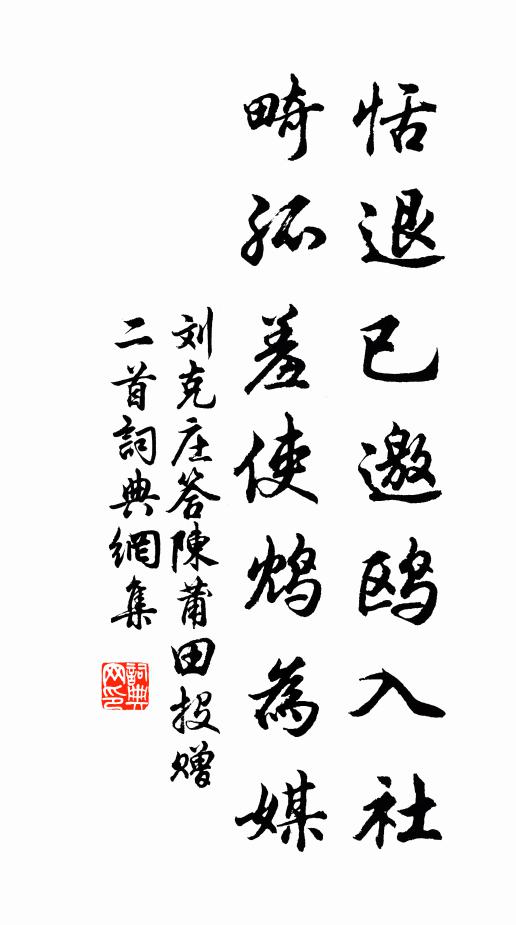 恬退已邀鸥入社
畸孤羞使鸩為媒
刘克庄答陳莆田投赠
二首詞典網集
詞典网印